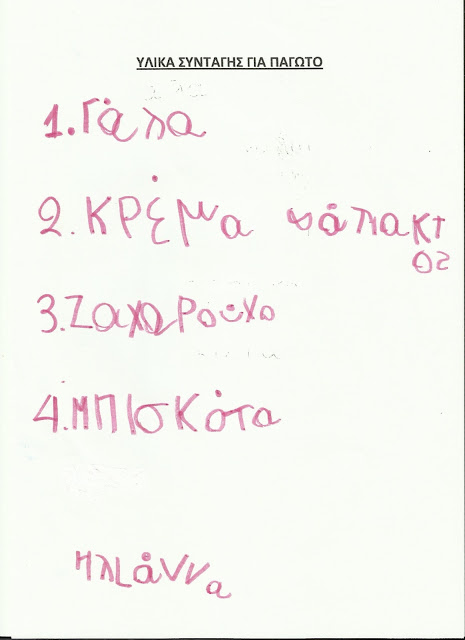 ΥΛΙΚΑ ΣΥΝΤΑΓΗΣ ΓΙΑ ΠΑΓΩΤΟ
1. Γάλα
2. ΚΡέμα γάλακτ
ος
3. ΖαχαΡούχο
4. ΜΠΙσΚότα
Ηλιάννα